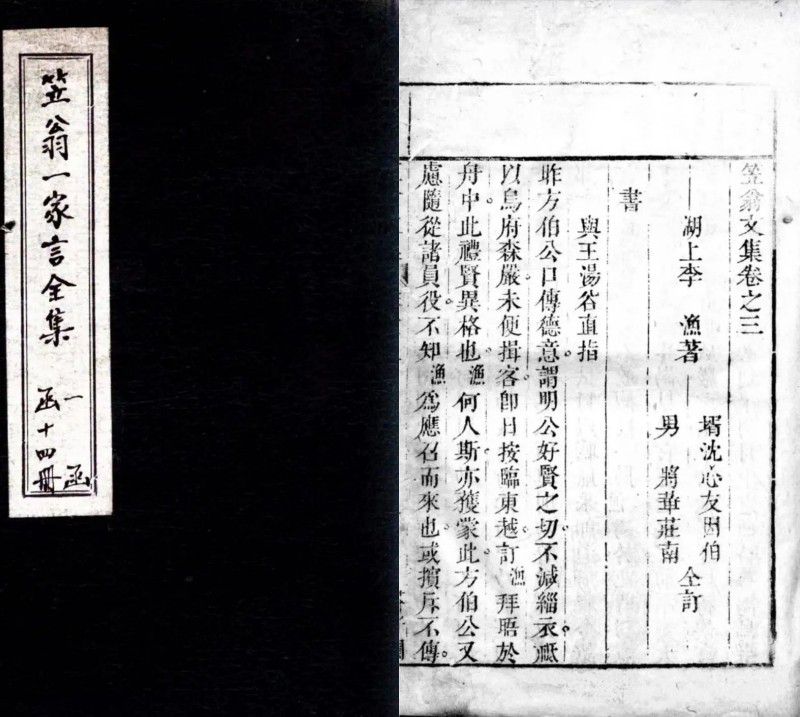 笠翁一家言全集
一函
函十四冊
笠翁文集卷之三
湖上李漁著
壻沈心友因伯
男將華莊南
仝訂
書
與王湯谷直指
昨方伯公口傳德意。謂明公好賢之切。不減緇衣。祗
以烏府森嚴。未便揖客。卽日按臨東越。訂漁拜晤於
舟中。此禮賢異格也。漁何人斯。亦獲蒙此。方伯公又
慮隨從諸員役。不知漁爲應召而來也。或擯斥不傳。